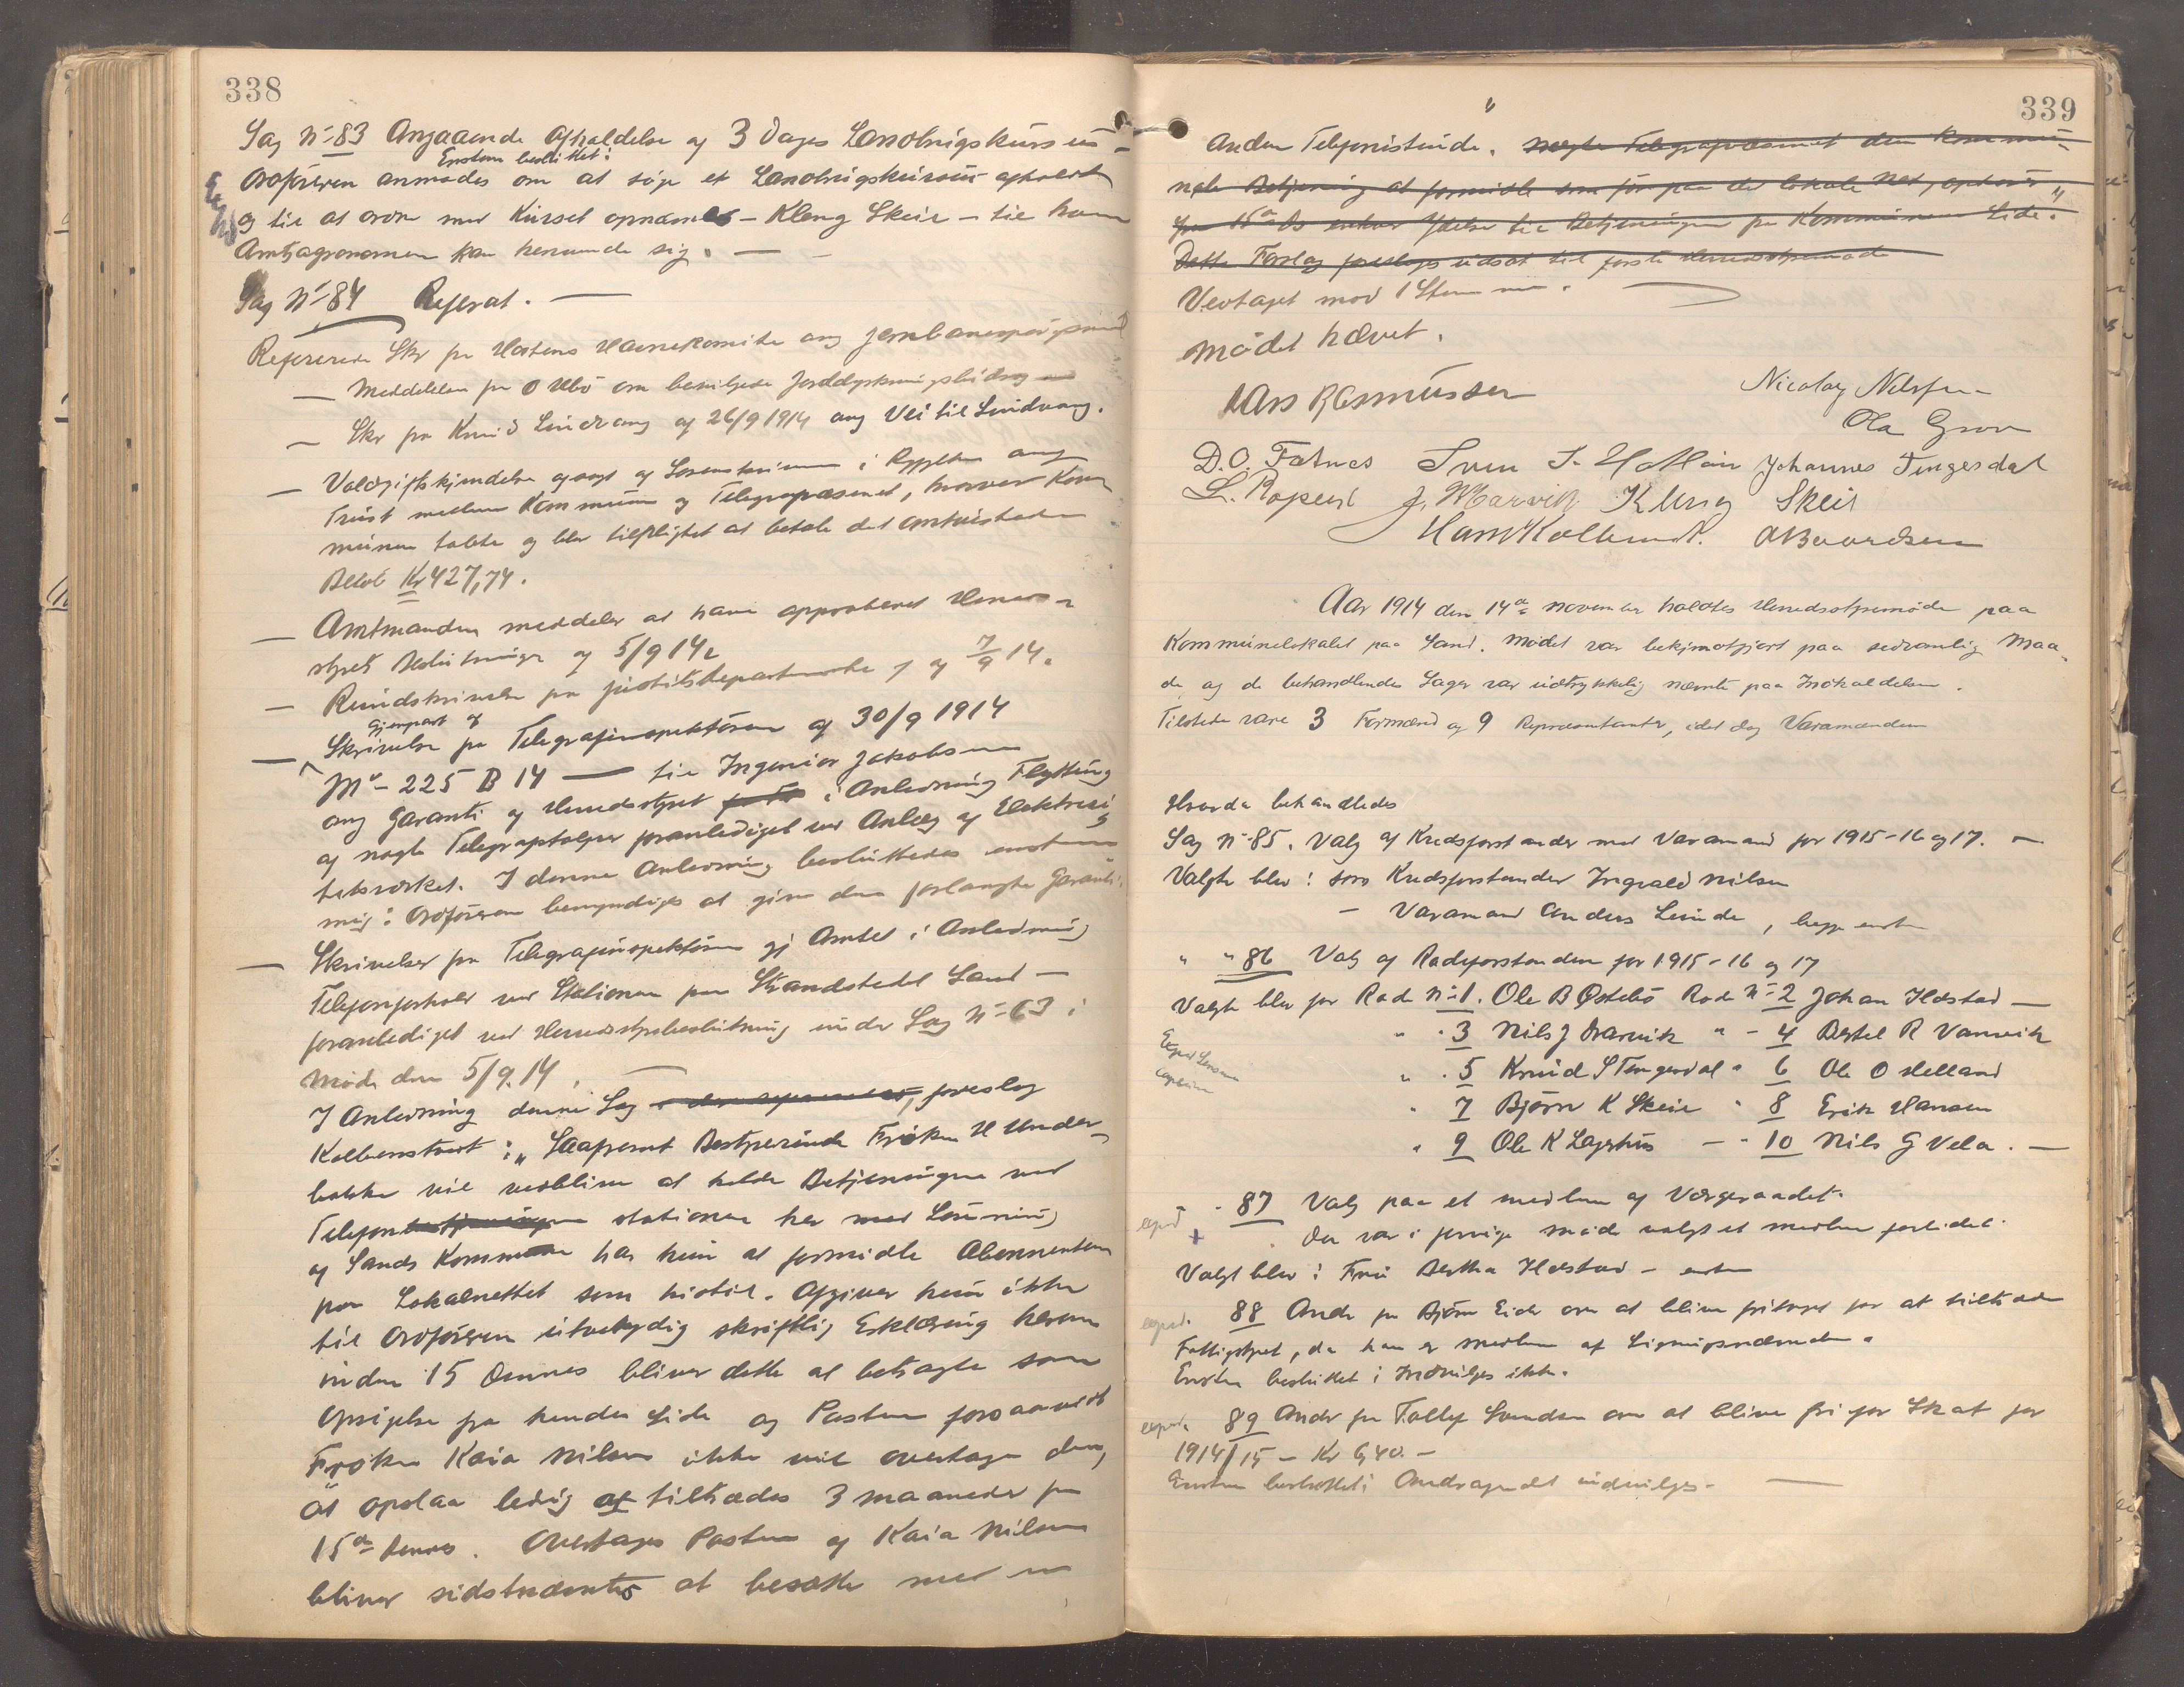 338
Sag No 83 Angaaende Afholdelse af 3 Dages Landbrugskursus
Enstem besluttet:
Ordføreren anmodes om at søge et Landbrugskursus afholdt
og til at ordne med Kurset opnævnes - Kleng Skeie - til ham
Amtsagronomen kan henvende sig. —
Sag No 84 Referat. —
Refererede Skr fra Havnekomite ang Jernbanespørgsmaal
— Meddelelse fra O Ubø om bevilgede Jorddyrkningsbidrag
— Skr fra Knud Lindvang af 26/9 1914 ang Vei til Lindvang.
— Voldgiftskjendelse afsagt af Sorenskriveren i Ryfylke ang
Tvist mellem Kommunen og Telegrafvæsenet, hvorved Kom
munen tabte og blev tilpligtet at betale det omtvistede
Beløb Kr 427,74.
— Amtmanden meddeler at have approberet Herreds-
styrets Beslutninger af 5/9 14
— Rundskrivelse fra Justitsdepartementet af 7/9 14.
Gjenpart af
— Skrivelse fra Telegrafinspektøren af 30/9 1914
No 225 B 14 — til Ingeniør Jakobsen
ang Garanti af Herredsstyret i Anledning Flytting
af nogle Telegrafstolper foranlediget ved Anlæg af Elektrici
tetsverket. I denne Anledning besluttedes enstem
mig: Ordføreren bemyndiges at give den forlangte Garanti.
— Skrivelser fra Telegrafinspektøren gj Amtet i Anledning
Telefonforhold ved Stationen paa Strandstedet Sand —
foranlediget ved Herredsstyrebeslutning under Sag No 63 i
Møde den 5/9.14. —
I Anledning denne Sag foreslog
Kolbenstvedt: „Saafremt Bestyrerinde Frøken H Under-
bakke vil vedblive at holde Betjeningen ved
Telefonstationen her med Lønning
af Sands Kommune har hun at formidle Abonnenterne
paa Lokalnettet som hidtil. Afgiver hun ikke
til Ordføreren utvetydig skriftlig Erklæring herom
inden 15 Dennes bliver dette at betragte som
Opsigelse fra hendes Side og Posten forsaavidt
Frøken Kaia Nilsen ikke vil overtage den,
at opslaa ledig at tiltrædes 3 maaneder fra
15de dennes. Overtages Posten af Kaia Nilsen
bliver sidstnævntes at besætte med en
339
anden Telefonistinde." negter Telegrafvæsenet den kommu-
nale Betjening at formidle som før paa det lokale Net, ophører
fra 15de Ds enhver Ydelse til Betjeningen fra Kommunens Side."
Dette Forslag foreslaaes udsat til første Herredsstyremøde
Vedtaget mod 1 Stemme.
Mødet hævet.
Lars Rasmussen
Nicolay Nilssen
Ola Grov
D.O. Fatnes Sven S. Høllan Johannes Tengesdal
L. Ropeid J. Marvik Kleng Skeie
Hans Kolbenstvedt. A Baardsen
Aar 1914 den 14de November holdtes Herredsstyremøde paa
Kommunelokalet paa Sand. Mødet var bekjendtgjort paa sedvanlig Maa-
de og de behandlende Sager var udtrykkelig nævnte paa Indkaldelsen.
Tilstede vare 3 Formænd og 9 Repræsentanter, idet dog Varamanden
Hvorda behandledes
Sag No 85. Valg af Kredsforstander med Varamand for 1915-16 og 17. —
Valgte blev: som Kredsforstander Ingvald Nilsen
— Varamand Anders Lunde, begge enst
" " 86 Valg af Rodeforstandere for 1915-16 og 17
Valgte blev for Rode No 1. Ole B Østebø Rode No 2 Johan Ilstad —
" " 3 Nils J Marvik " - 4 Bertel R Vanvik
" . 5 Knud S Tengesdal " 6 Ole O Helland
" 7 Bjørn K Skeie " 8 Erik Hansen
" 9 Ole K Lagshus — " 10 Nils G Vela. —
exped
" 87 Valg paa et medlem af Vergeraadet.
Der var i forrige Møde valgt et medlem forlidet.
Valgt blev: Fru Bertha Ilstad - enst
exped. 88 Andr fra Bjørn Eide om at blive fritaget for at tiltræde
Fattigstyret, da han er medlem af Ligningsnævnden.
Enstem besluttet: Indvilges ikke.
exped. 89 Andr fra Tollef Sundsen om at blive fri for Skat for
1914/15 - Kr 6,40. -
Enstem besluttet: Andragendet indvilges. —